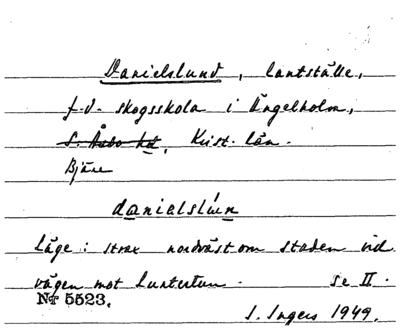 Danielslund, lantställe,
f.d. skogsskola i Ängelholm,
S. Åsbo hd, Krist. län.
Bjäre
danielslun
Läge: strax nordväst om staden vid
vägen mot Luntertun. se II.
Nr 5523.
I. Ingers 1949.